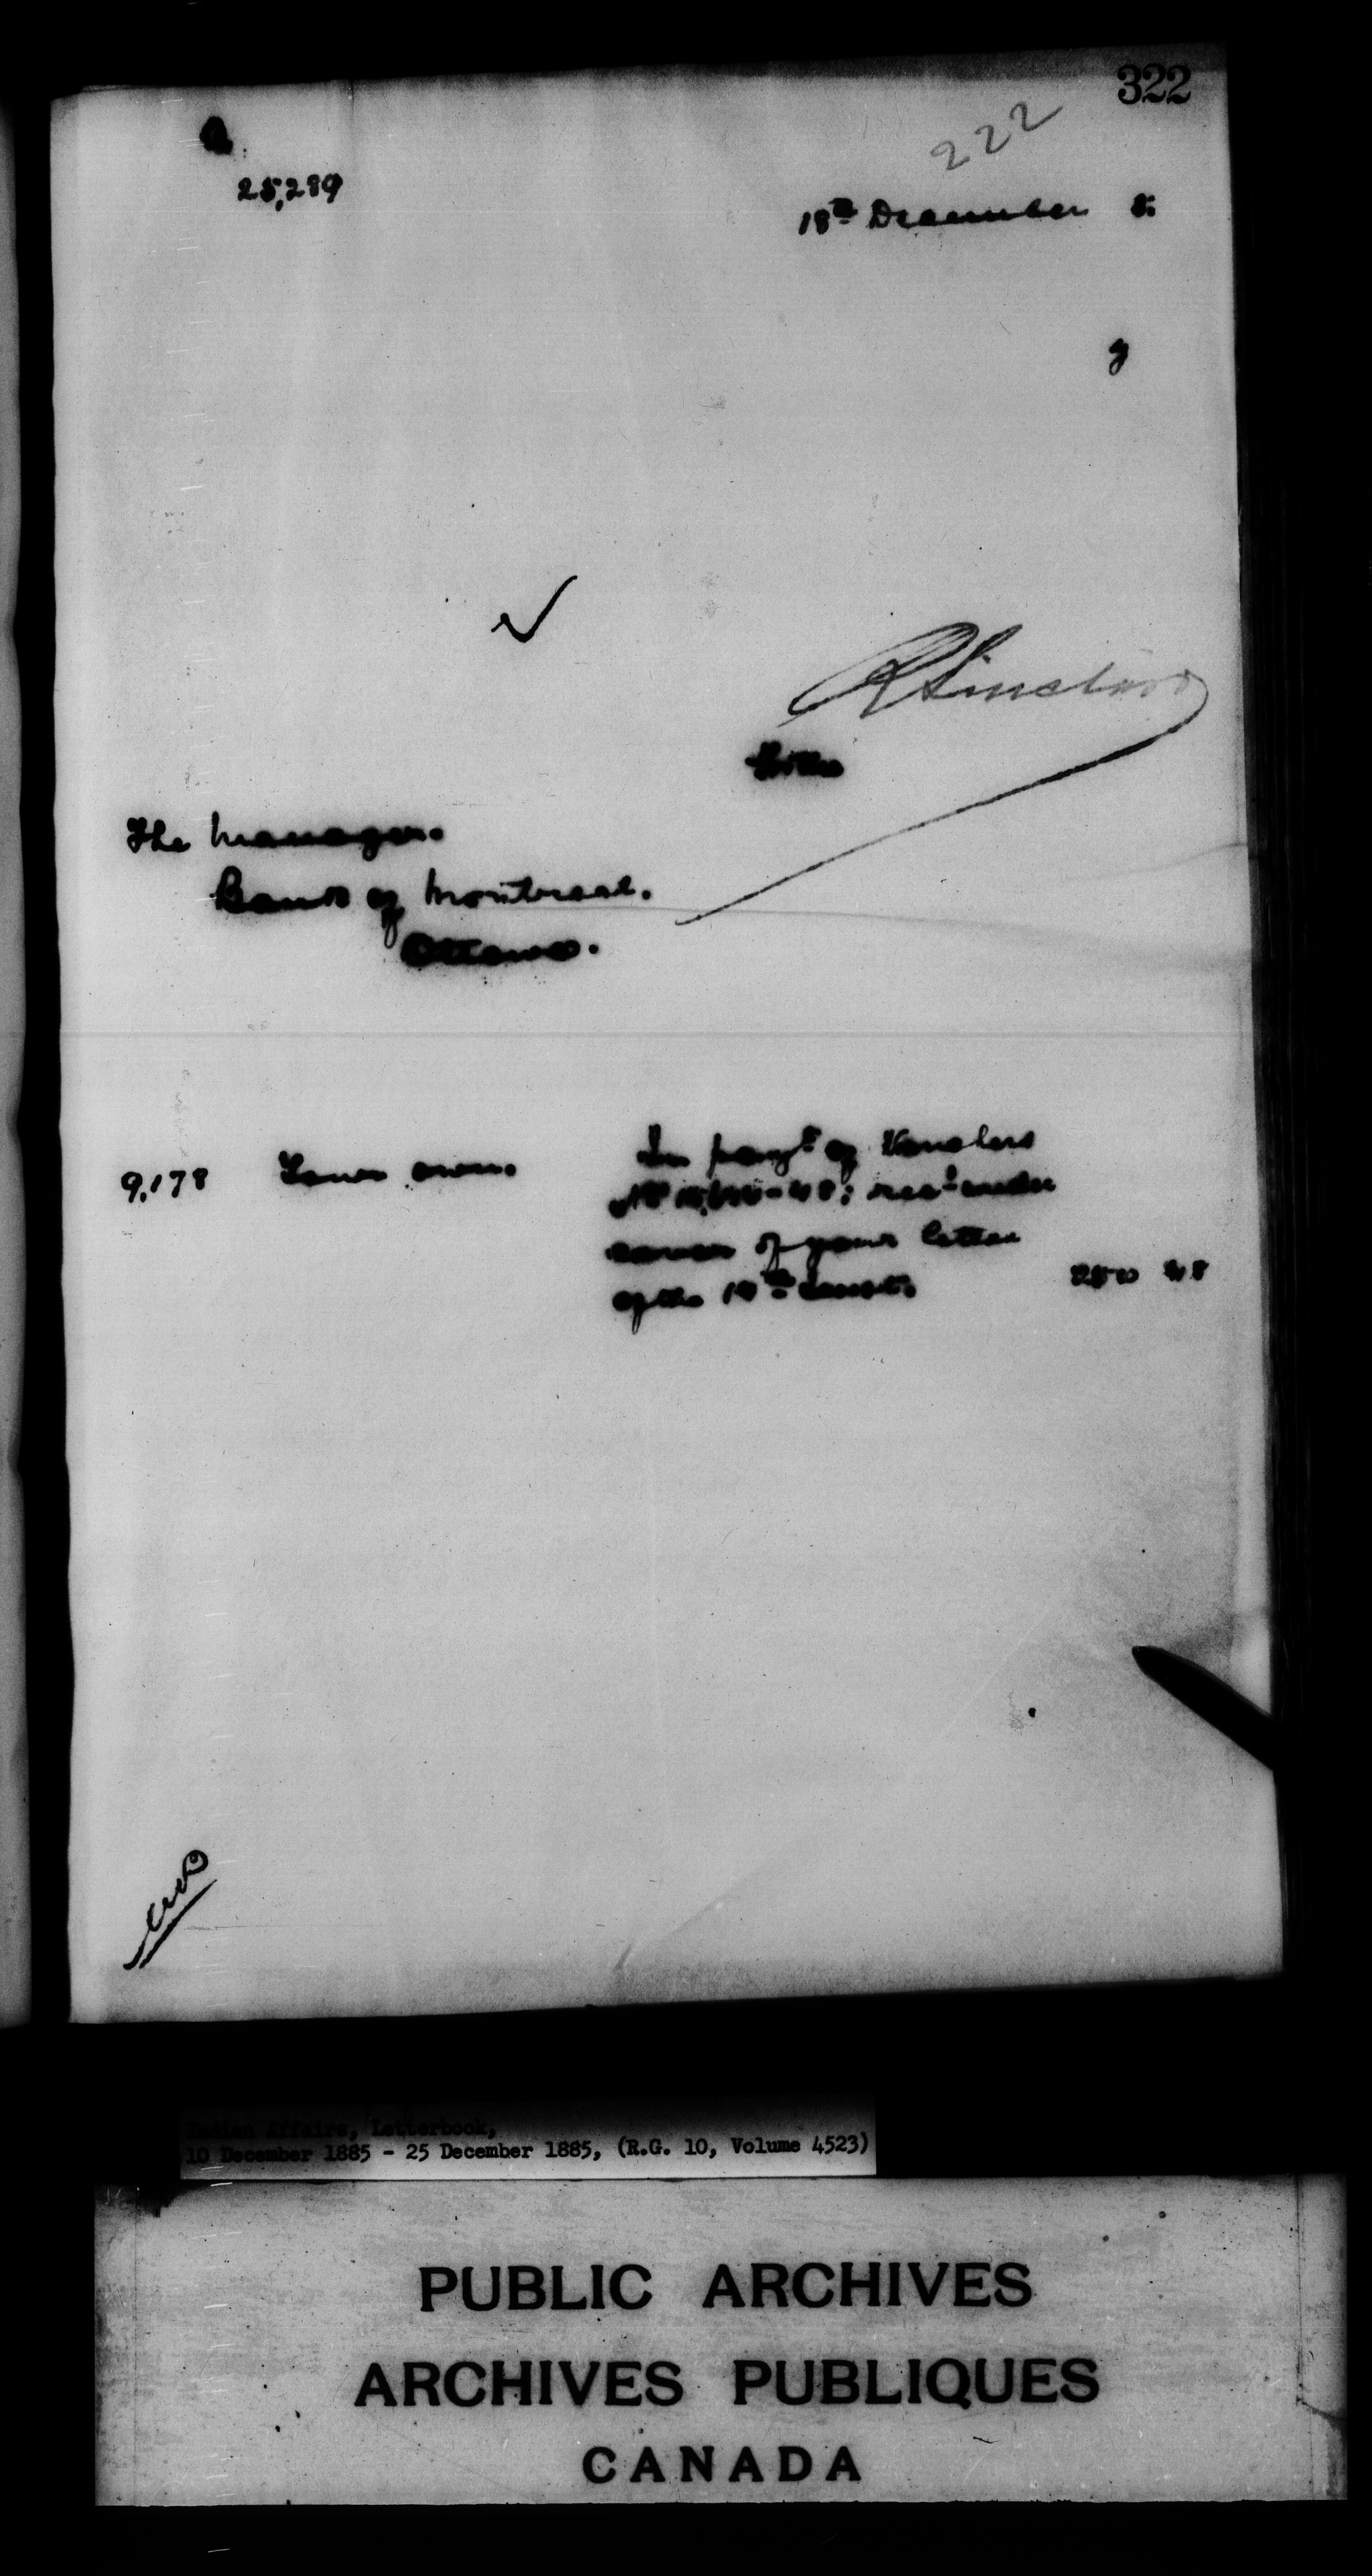 322
222
25,289
18th December 5
R Sinclair
The Manager.
Bank of Montreal.
Ottawa.
9,178 Your own. In payt of Vouchers
recd under
cover of your letter
of the inst.
Indian Affairs, Letterbook,
10 December 1885 - 25 December 1885, (R.G. 10, Volume 4523)
PUBLIC ARCHIVES
ARCHIVES PUBLIQUES
CANADA